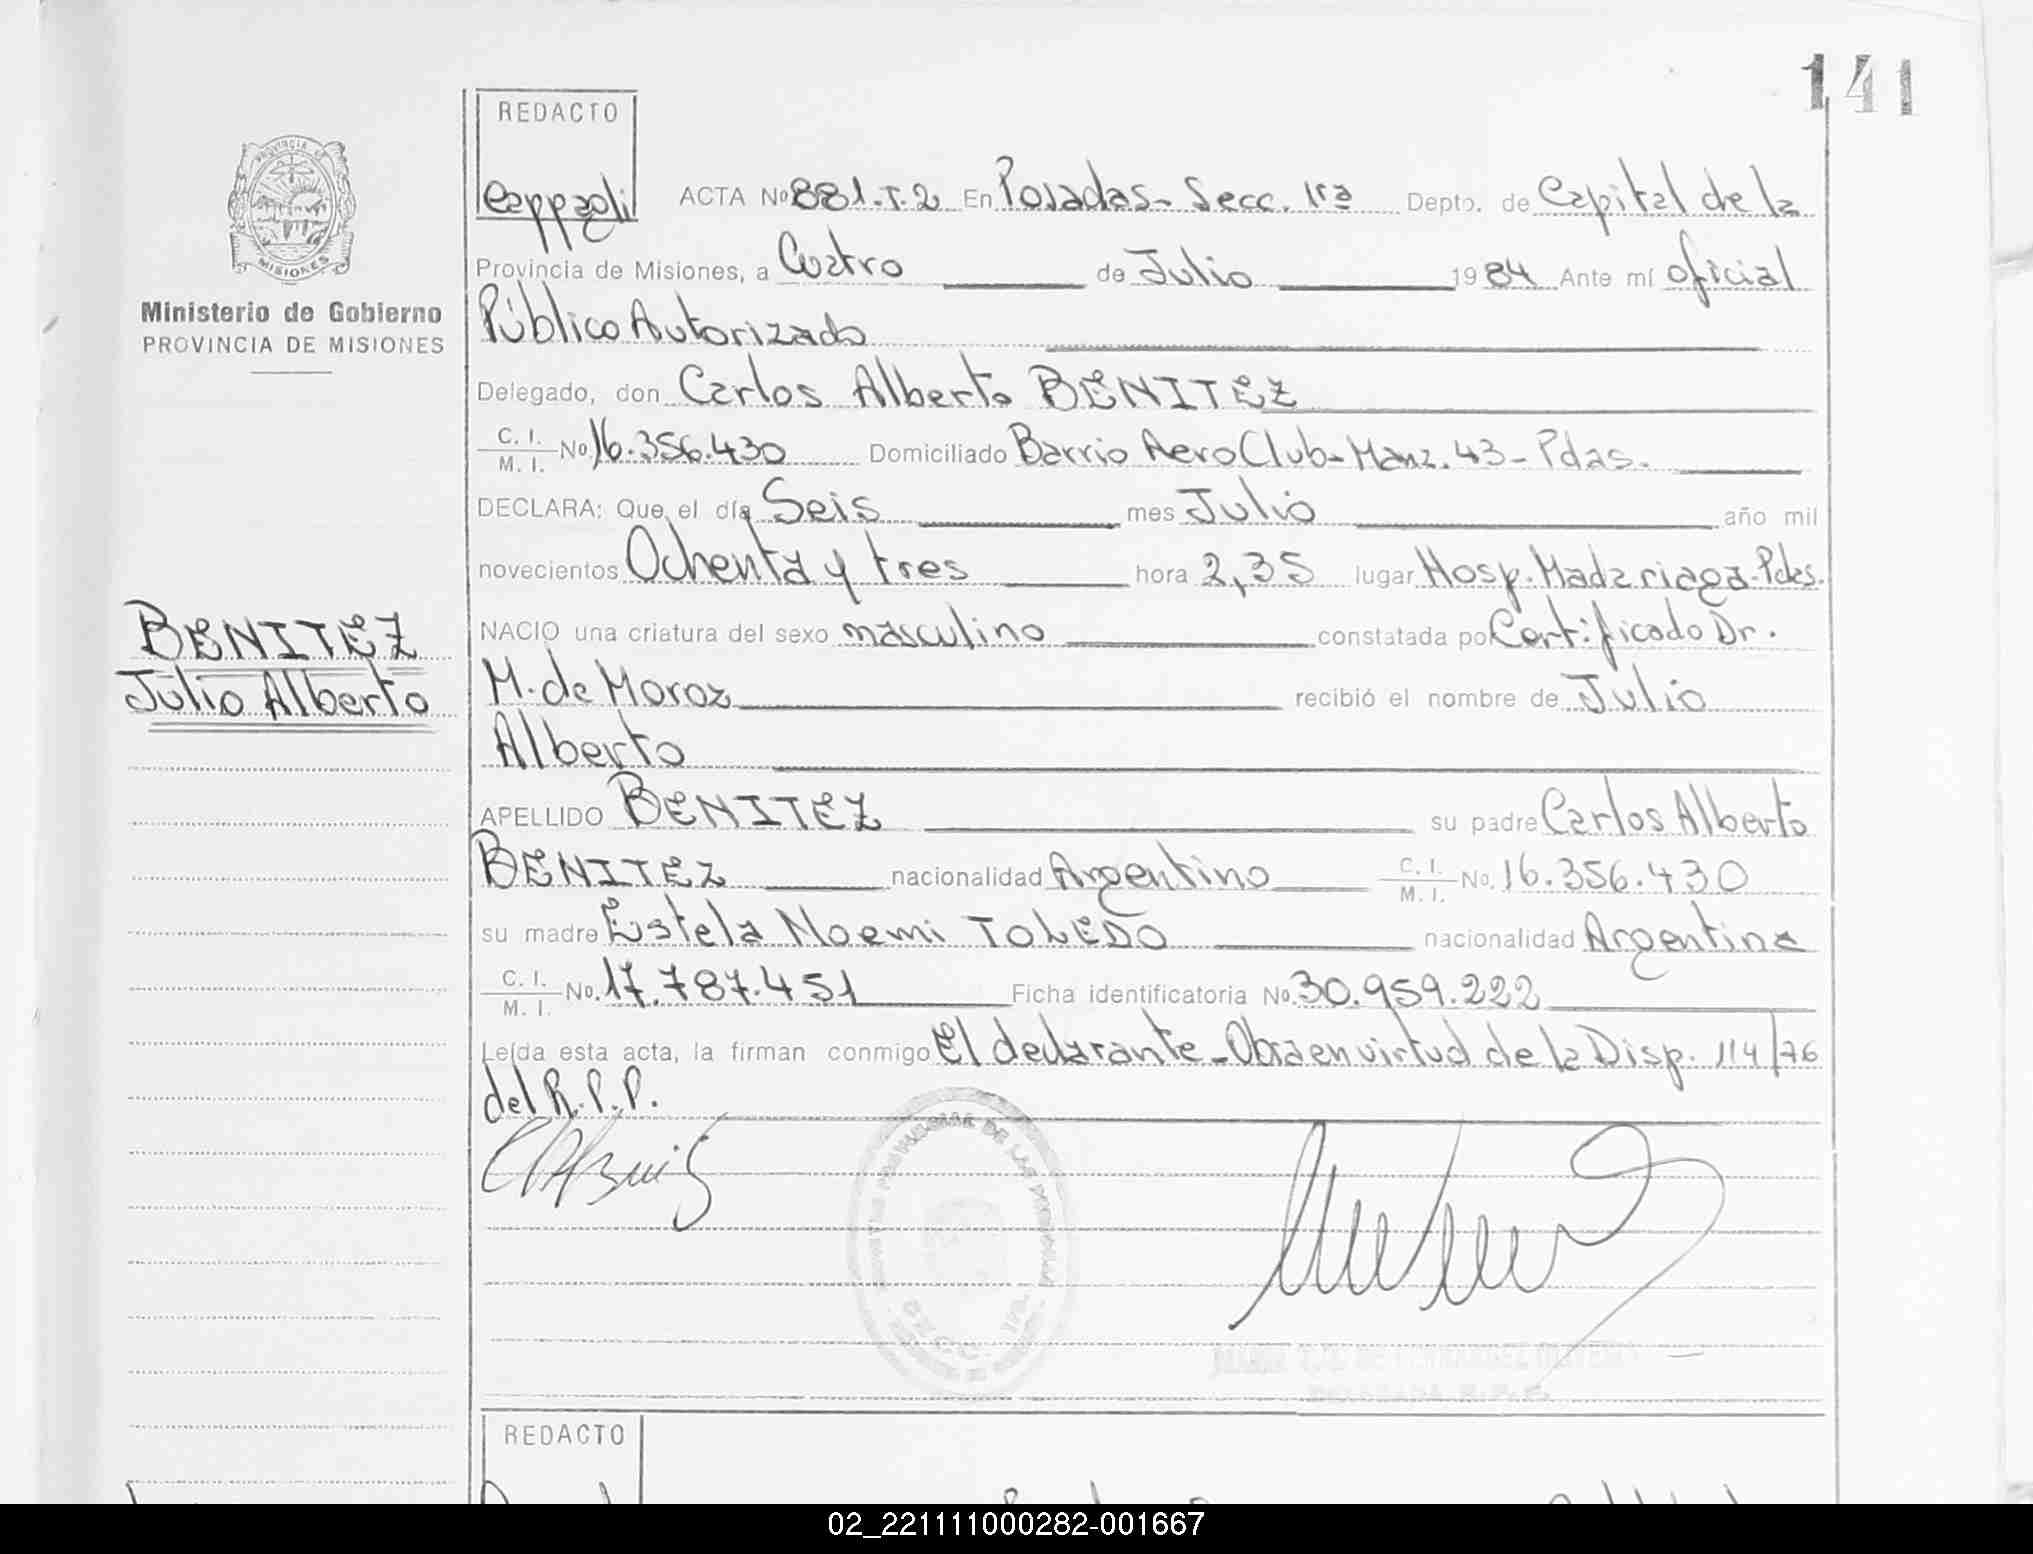 141
REDACTO
Cappzoli
PROVINCIA DE
MISIONES
Ministerio de Gobierno
PROVINCIA DE MISIONES
ACTA No 881.T.2 En Posadas - Secc. 1ra Depto. de Capital de la
Provincia de Misiones, a Cuatro de Julio 1984 Ante mí oficial
Público Autorizado
Delegado, don Carlos Alberto BENITEZ
C. I. / M. I. No. 16.356.430 Domiciliado Barrio Aero Club - Manz. 43 - Pdas.
DECLARA: Que el día Seis mes Julio año mil
novecientos Ochenta y tres hora 2,35 lugar Hosp. Madariaga - Pdas.
BENITEZ
Julio Alberto
NACIO una criatura del sexo masculino constatada por Certificado Dr.
M. de Moroz recibió el nombre de Julio
Alberto
APELLIDO BENITEZ su padre Carlos Alberto
BENITEZ nacionalidad Argentino C. I. / M. I. No. 16.356.430
su madre Estela Noemi TOLEDO nacionalidad Argentina
C. I. / M. I. No. 17.787.451 Ficha identificatoria No. 30.959.222
Leída esta acta, la firman conmigo El declarante - Obra en virtud de la Disp. 114/76
del R.P.P.
DE LAS PERSONAS
DELEGADA R.P.P.
REDACTO
02_221111000282-001667